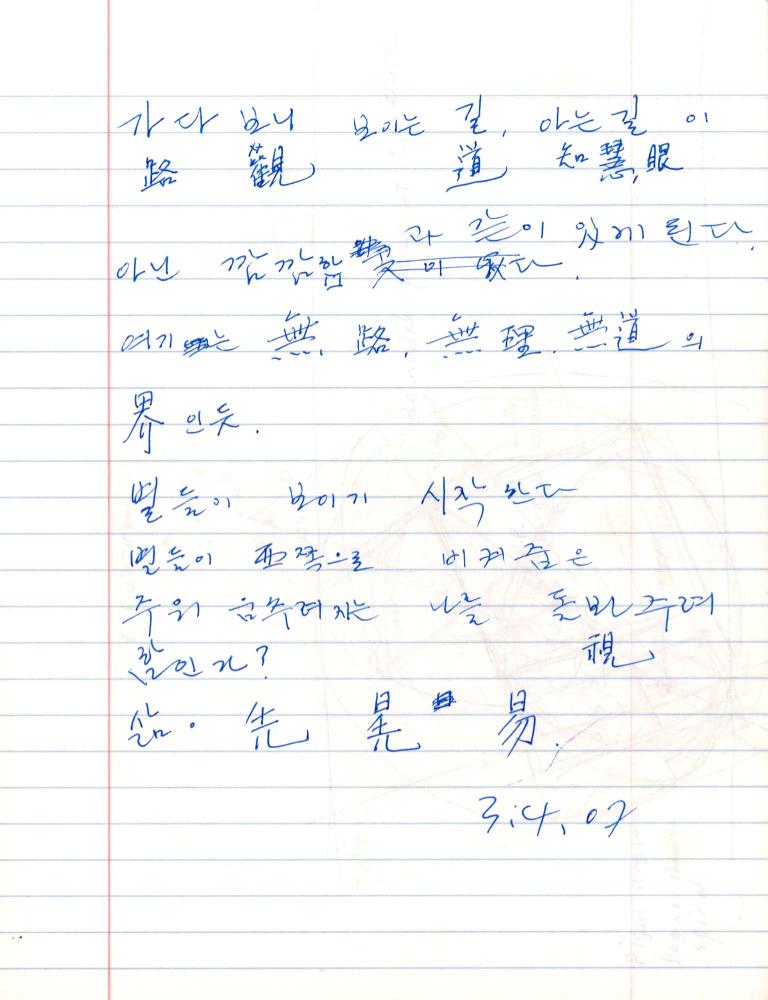 가다 보니 보이는 길, 아는 길 이
路 觀 道 知慧, 眼
아닌 깜깜함과 같이 있게 된다.
여기는 無路, 無理, 無道의
界인듯.
별들이 보이기 시작한다
별들이 西쪽으로 비켜줌은
주위 움추려지는 나를 돌봐주려
함인가?
視
삶. 先 晃 易.
3.4.07